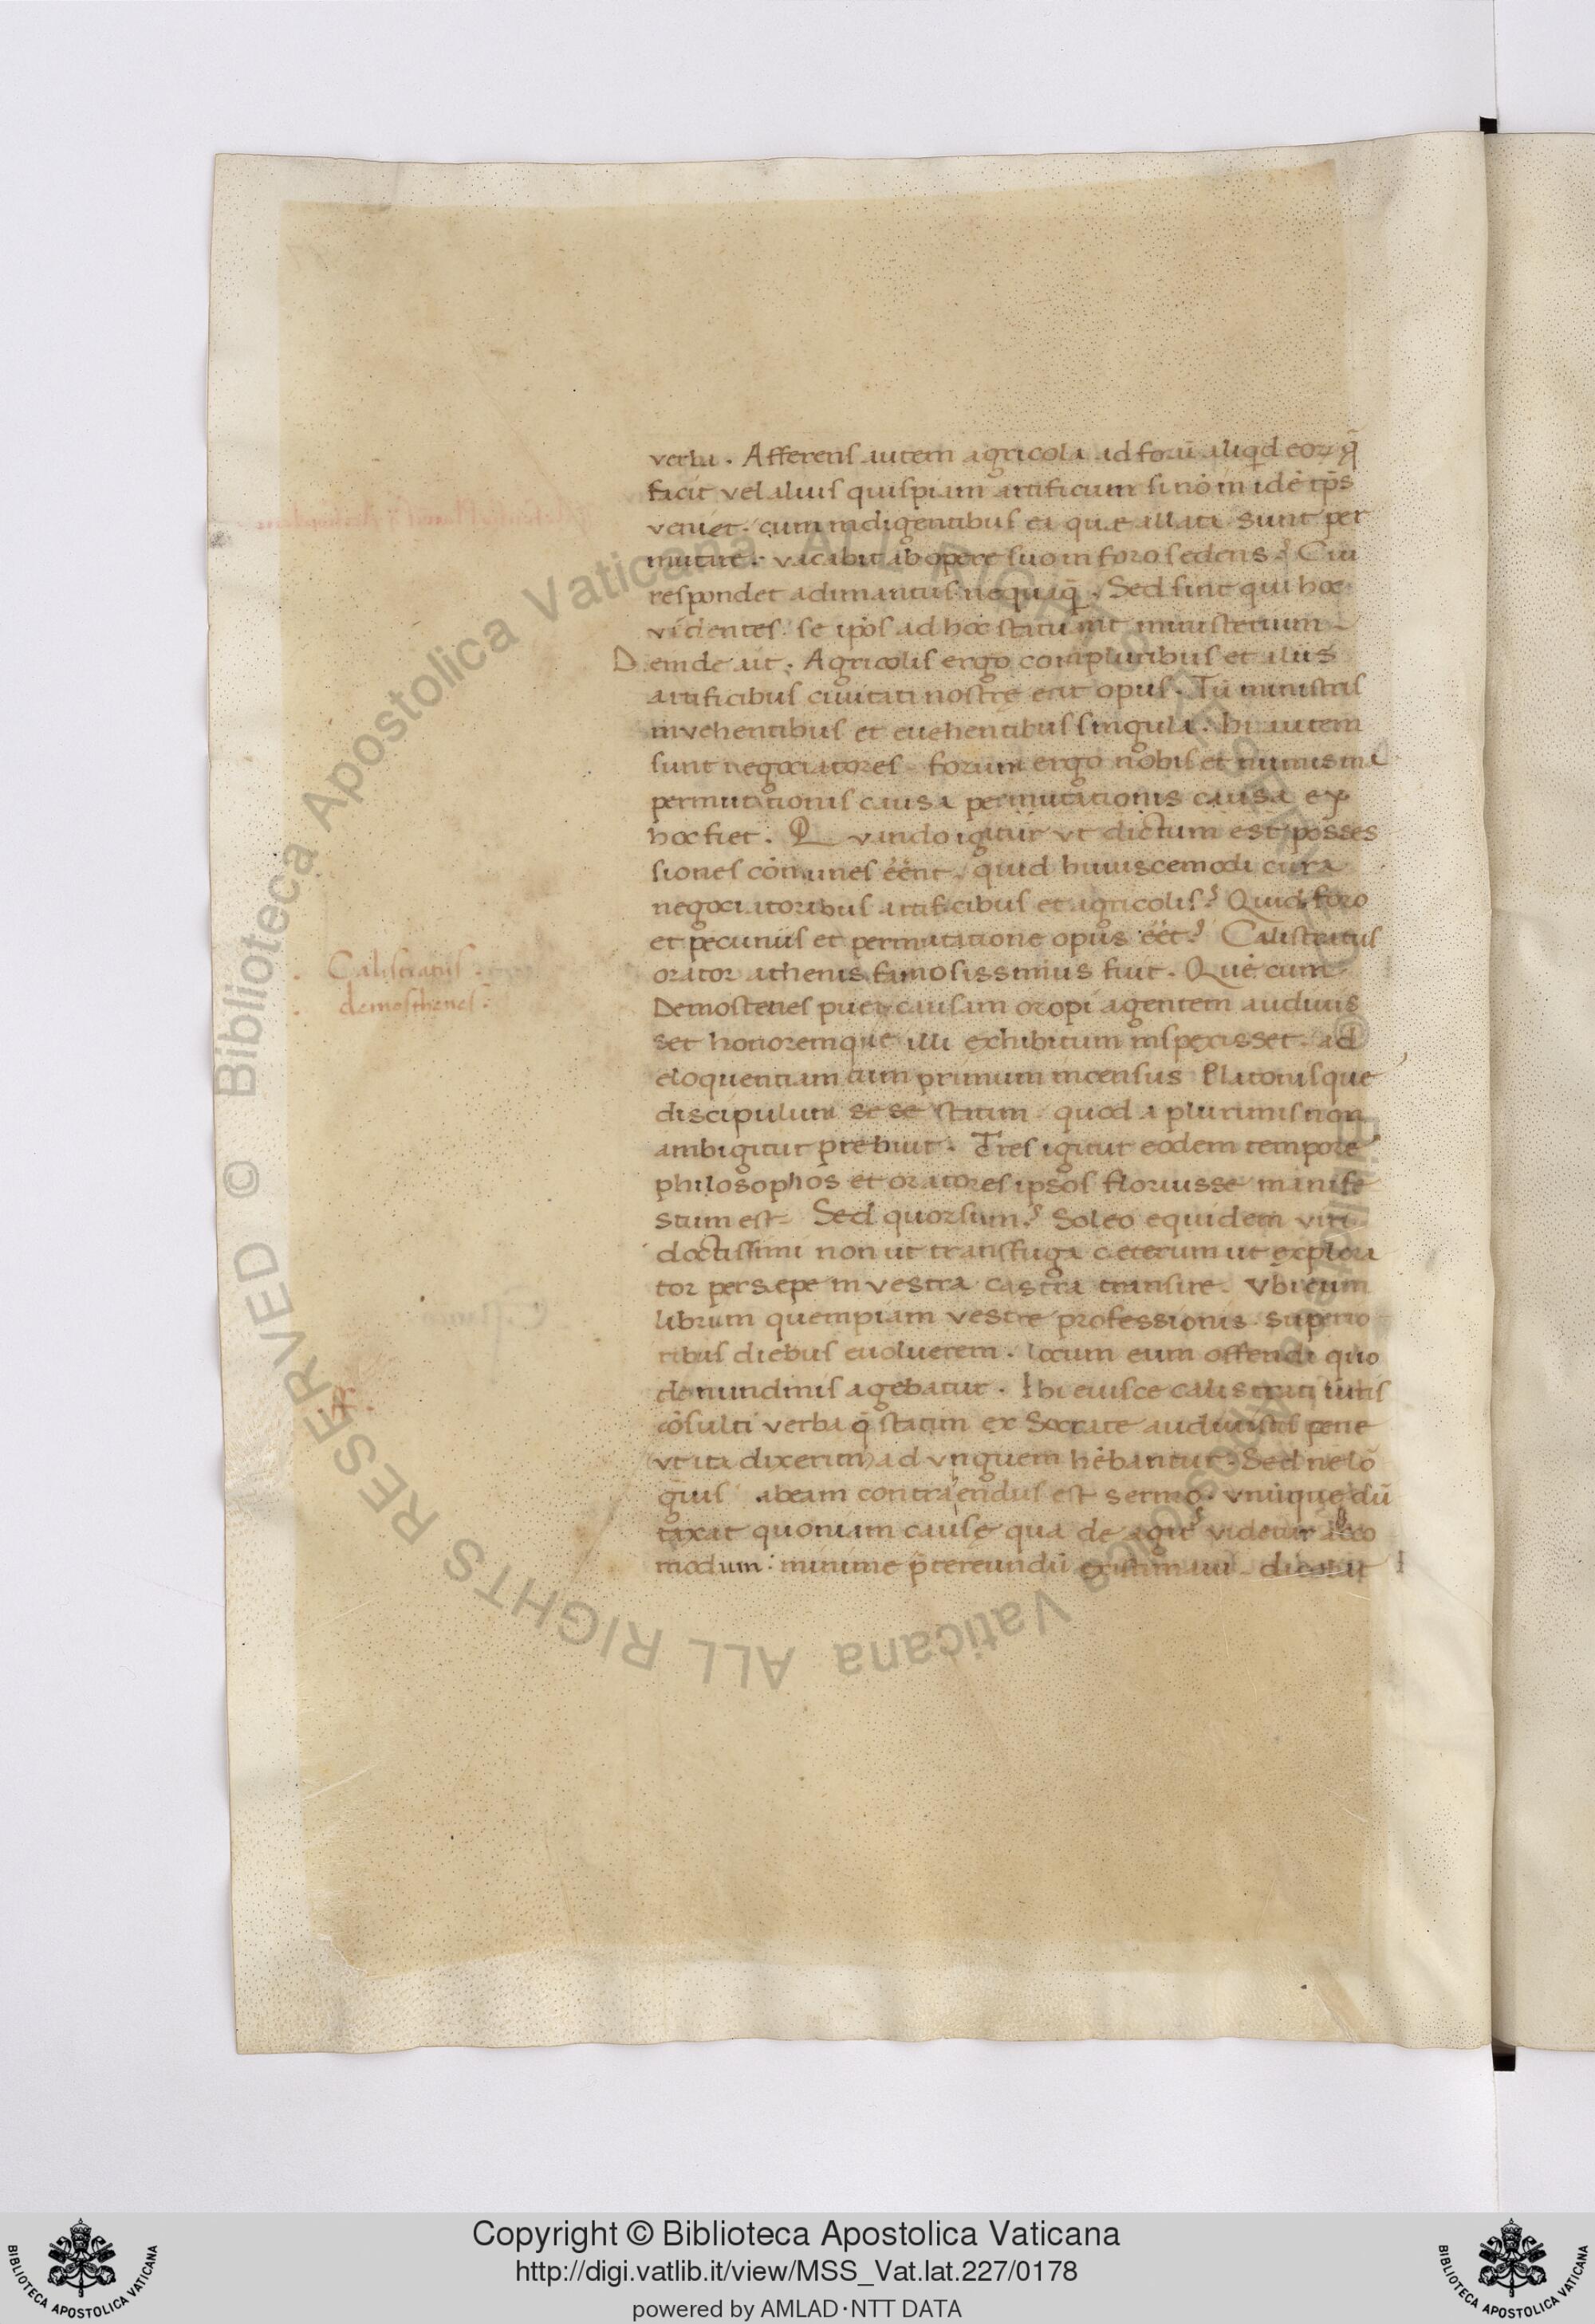 verba. Afferens autem agricola ad forū aliqd eoꝝ q̄
facit vel alius quispiam artificum si nō in idē tp̄s
veniet. cum indigentibus ea quę allata sunt per
mutare. vacabit ab opere suo in foro sedens? Cui
respondet adimantus nequaq̄. Sed sint qui hoc
videntes se ip̄os ad hoc statuunt ministerium
Deinde ait. Agricolis ergo compluribus et aliis
artificibus civitati nostrę erit opus. Tū ministris
invehentibus et evehentibus singula. hi autem
sunt negociatores. forum ergo nobis et numisma
permutationis causa permutationis causa ex
hoc fiet. Quando igitur vt dictum est posses
siones cōmunes eēnt. quid huiuscemodi cura
negociatoribus artificibus et agricolis? Quid foro
et pecuniis et permutatione opus eēt? Calistratus
orator athenis famosissimus fuit. Quē cum
Demostenes puer causam oropi agentem audiuis
set honoremque illi exhibitum inspexisset. ad
eloquentiam tum primum incensus Platonisque
discipulum se se statim quod a plurimis non
ambigitur prebuit. Tres igitur eodem tempore
philosophos et oratores ipsos floruisse manife
stum est. Sed quorsum? Soleo equidem viri
doctissimi non ut transfuga ceterum ut explora
tor persepe in vestra castra transire. Vbi cum
librum quempiam vestre professionis superio
ribus diebus euoluerem. locum eum offendi quo
de nundinis agebatur. Ibi eiusce calistrati iuris
cōsulti verba q̄ statim ex Socrate audiuistis pene
vt ita dixerim ad vnguem hēbantur. Sed ne lō
gius abeam contrahendus est sermo. vnūque dū
taxat quoniam causę qua de agit videtur acco
modum: minime p̄tereundū existimaui. dicatur
Calistratus.
demosthenes.
ff.
Copyright © Biblioteca Apostolica Vaticana
http://digi.vatlib.it/view/MSS_Vat.lat.227/0178
powered by AMLAD·NTT DATA
BIBLIOTECA APOSTOLICA VATICANA
BIBLIOTECA APOSTOLICA VATICANA